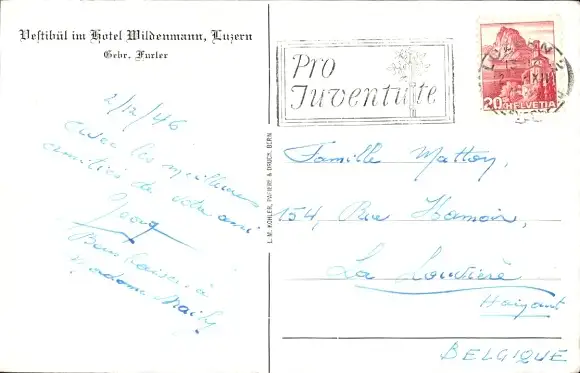 Vestibül im Hotel Wildenmann, Luzern
Gebr. Furler
2/12/46
avec les meilleures
amitiés de votre ami
Bons baisers à
Madame
L. M. KOHLER, PAPIERE & DRUCK, BERN
Pro
Juventute
LUZERN 2
20
HELVETIA
Famille Mattoy,
154, Rue Hamoir,
La Louvière
Hainaut
BELGIQUE